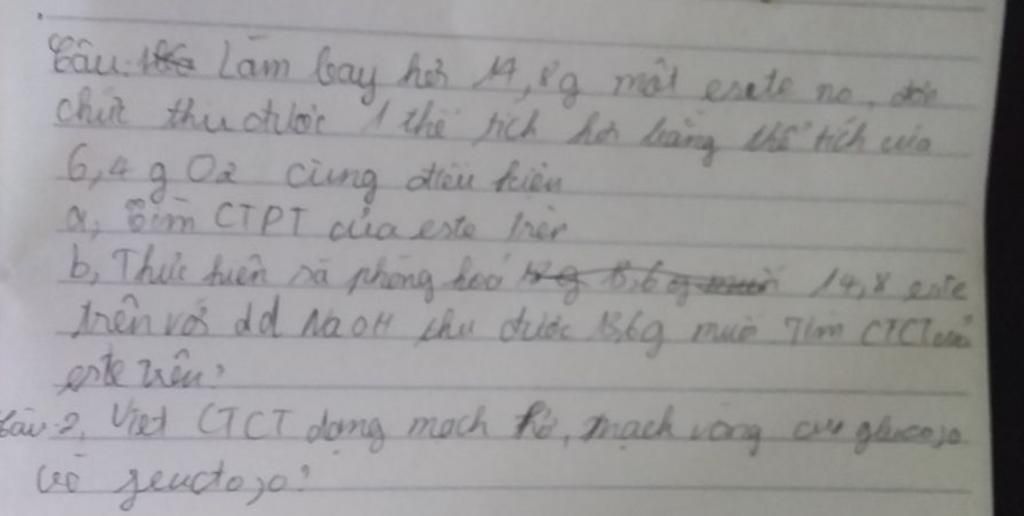 Câu 1. Làm bay hơi 14,8g một este no, đơn
chức thu được 1 thể tích hơi bằng thể tích của
6,4 g O2 cùng điều kiện
a, Tìm CTPT của este trên
b, Thực hiện xà phòng hoá 14,8 este
trên với dd NaOH thu được 13,6g muối Tìm CTCT của
este trên?
Câu 2, Viết CTCT dạng mạch hở, mạch vòng của glucozo
và fructozo?